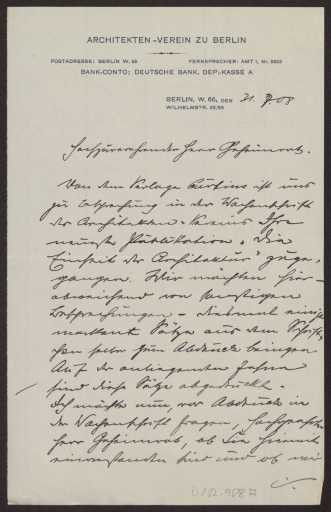 ARCHITEKTEN-VEREIN ZU BERLIN
POSTADRESSE: BERLIN W. 66
FERNSPRECHER: AMT I, Nr.
BANK-CONTO: DEUTSCHE BANK, DEP.-KASSE A
BERLIN, W. 66, DEN 21. 7. 08
WILHELMSTR. 92/93
Hochzuverehrender Herr Geheimrat.
Von dem Verlage Curtius ist uns
zu Besprechung in der Wochenschrift
des Architekten-Vereins Ihre
neueste Publikation „Die
Einheit der Architektur" zuge-
gangen. Wir möchten hier-
abweichend von sonstigen
Besprechungen diesmal einige
markante Sätze aus dem Schrift-
chen selbst zum Abdruck bringen
Auf der anliegenden Fahne
sind diese Sätze abgedruckt.
Ich möchte nun, vor Abdruck in
der Wochenschrift fragen,
Herr Geheimrat, ob Sie hiermit
einverstanden sind und ob wir